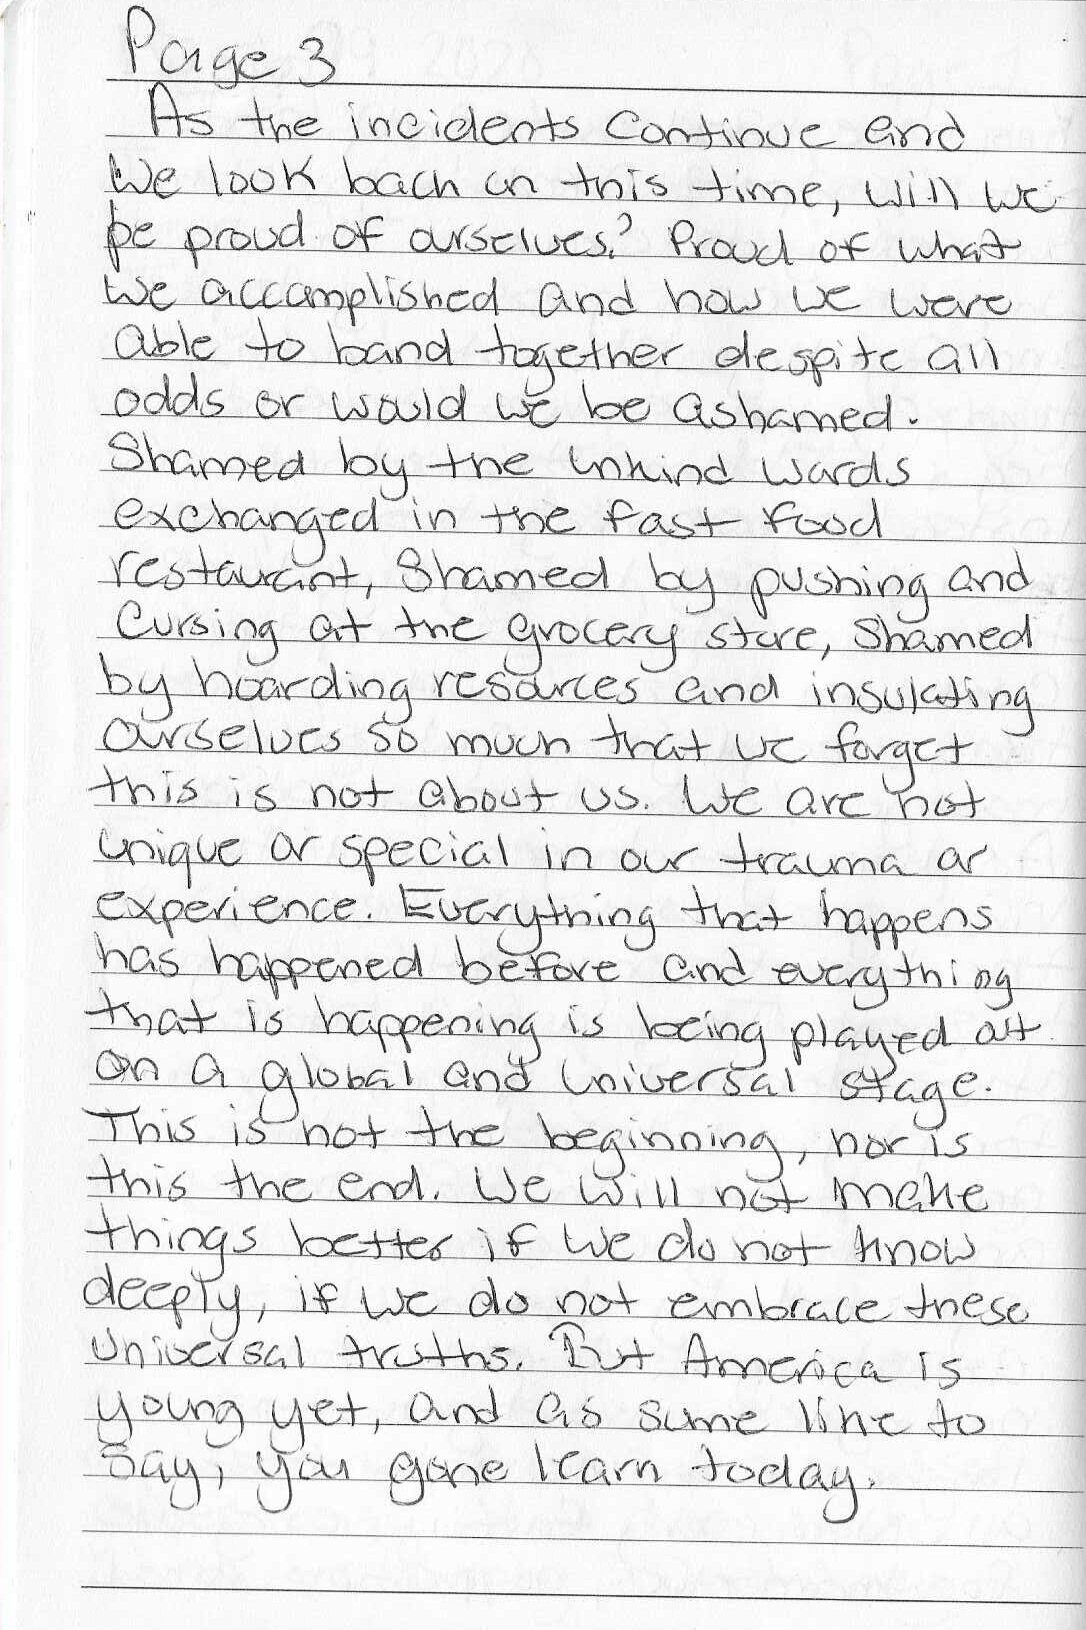 Page 3
As the incidents continue and
we look back on this time, will we
be proud of ourselves? Proud of what
we accomplished and how we were
able to band together despite all
odds or would we be ashamed.
Shamed by the unkind words
exchanged in the fast food
restaurant, shamed by pushing and
cursing at the grocery store, shamed
by hoarding resources and insulating
ourselves so much that we forget
this is not about us. We are not
unique or special in our trauma or
experience. Everything that happens
has happened before and everything
that is happening is being played out
on a global and universal stage.
This is not the beginning, nor is
this the end. We will not make
things better if we do not know
deeply, if we do not embrace these
universal truths. But America is
young yet, and as some like to
say, you gone learn today.